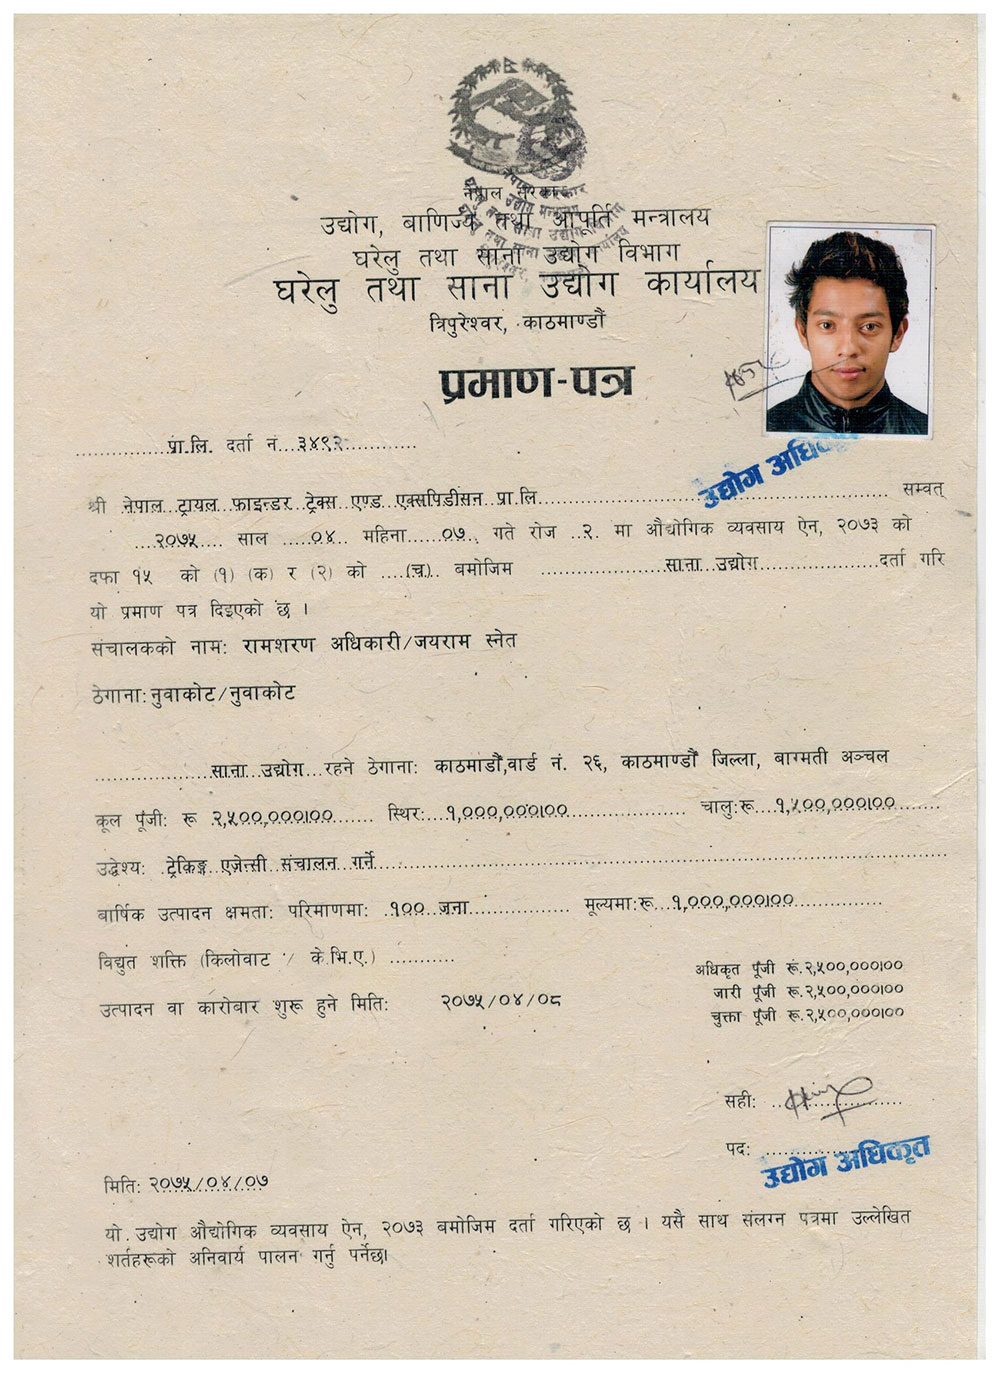 नेपाल सरकार
उद्योग, बाणिज्य तथा आपूर्ति मन्त्रालय
घरेलु तथा साना उद्योग विभाग
घरेलु तथा साना उद्योग कार्यालय
त्रिपुरेश्वर, काठमाण्डौं
प्रमाण-पत्र
प्रा.लि. दर्ता नं...३४९२............
उद्योग अधिकृत
श्री नेपाल ट्रायल फाइन्डर ट्रेक्स एण्ड एक्सपिडीसन प्रा.लि. सम्वत्
...२०७५.... साल .....०४.. महिना.....०७.. गते रोज ..२. मा औद्योगिक व्यवसाय ऐन, २०७३ को
दफा १५ को (१) (क) र (२) को ....(च).. बमोजिम ......साना उद्योग......दर्ता गरि
यो प्रमाण पत्र दिइएको छ ।
संचालकको नाम: रामशरण अधिकारी/जयराम स्नेत
ठेगाना: नुवाकोट/नुवाकोट
साना उद्योग रहने ठेगाना: काठमाडौं,वार्ड नं. २६, काठमाण्डौं जिल्ला, बाग्मती अञ्चल
कूल पूंजी: रू २,५००,०००|०० स्थिर: १,०००,०००|०० चालु:रू १,५००,०००|००
उद्धेश्य: ट्रेकिङ्ग एजेन्सी संचालन गर्ने
बार्षिक उत्पादन क्षमता: परिमाणमा: १०० जना मूल्यमा:रू १,०००,०००|००
विद्युत शक्ति (किलोवाट / के.भि.ए.) ...........
अधिकृत पूंजी रू.२,५००,०००|००
जारी पूंजी रू.२,५००,०००|००
उत्पादन वा कारोबार शुरू हुने मिति: २०७५/०४/०८
चुक्ता पूंजी रू.२,५००,०००|००
सही:
पद:
उद्योग अधिकृत
मिति: २०७५/०४/०७
यो उद्योग औद्योगिक व्यवसाय ऐन, २०७३ बमोजिम दर्ता गरिएको छ । यसै साथ संलग्न पत्रमा उल्लेखित
शर्तहरूको अनिवार्य पालन गर्नु पर्नेछ।